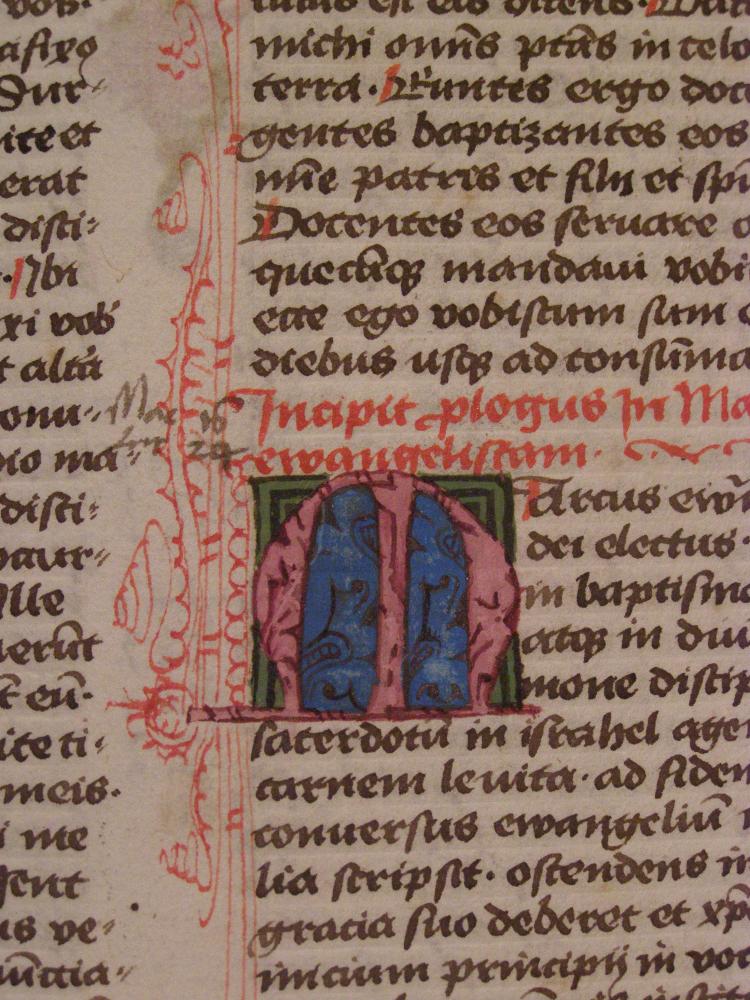 vos.
afixo
Sur-
ite et
erat
disti-
Ibi
xi vob
t alta
onu-
dio ma-
disti-
paur-
Ille
uerūt
t eū.
ite ti-
meis.
i me
sent
is ve-
ūctia-
tutus est eis dicens. Data
michi om̄s ptās in celo
terra. Euntes ergo doc
gentes baptizantes eos
nīe patris et filii et spi
Docentes eos seruare o
quecūqȝ mandaui vobi
ecce ego vobiscum sum o
diebus usqȝ ad consūma
Incipit plogus In Ma
ewangelistam.
MArcus ew̄
dei electus.
in baptisma
atqȝ in diu
mone discip
sacerdotū in israhel age
carnem leuita. ad fidem
conuersus ewangeliū i
lia scripsit. ostendens in
gracia suo deberet et xp̄
inicium principij in voc